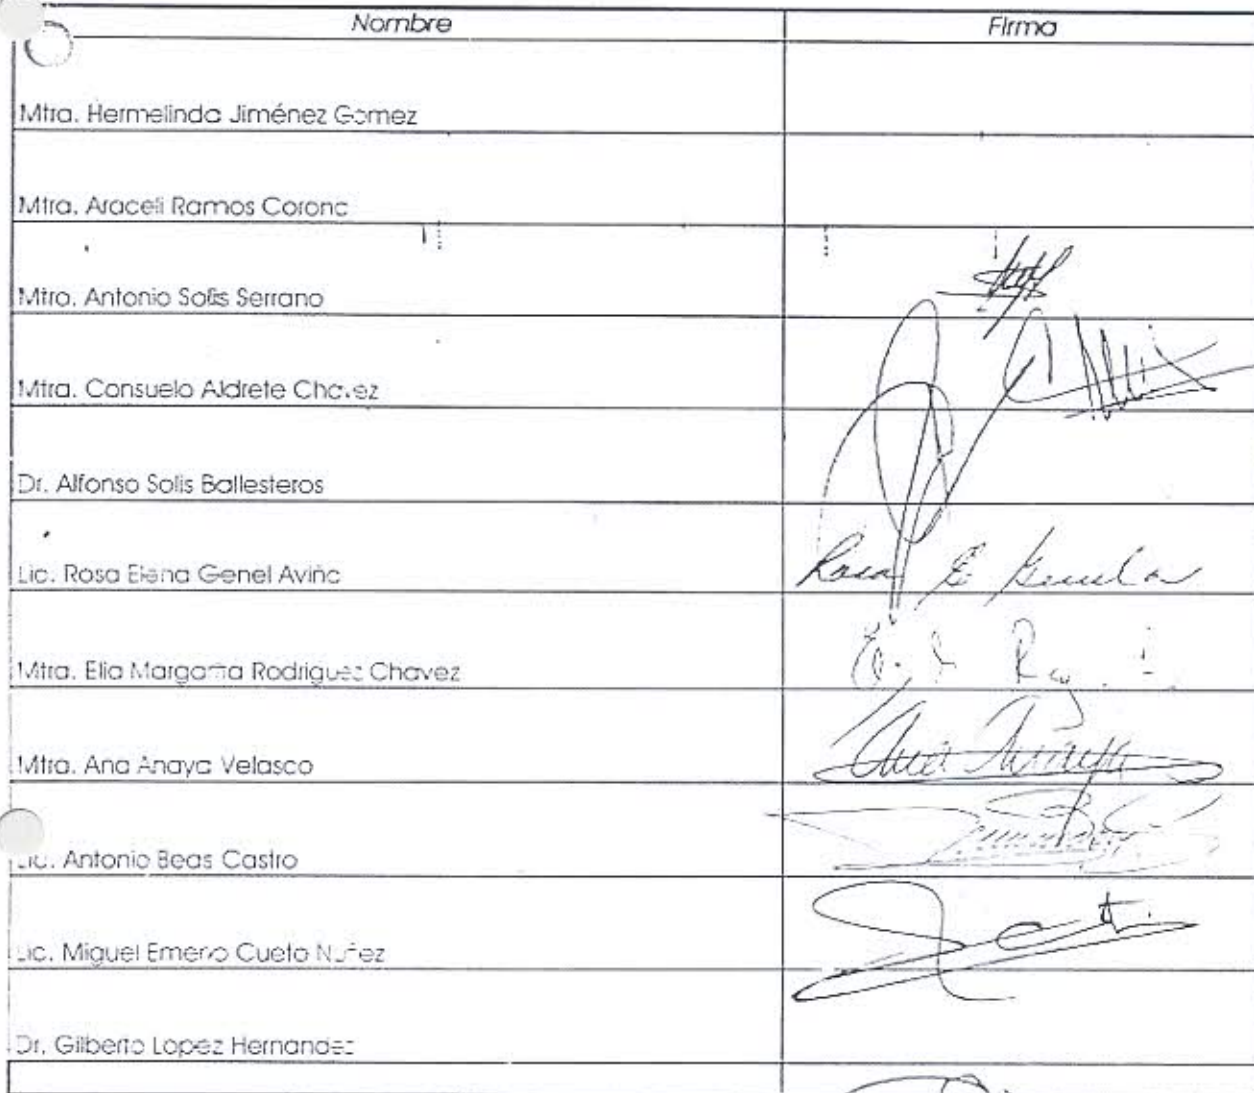 Nombre Firma
Mtra. Hermelinda Jiménez Gomez
Mtra. Araceli Ramos Corona
Mtro. Antonio Solis Serrano
Mtra. Consuelo Aldrete Chavez
Dr. Alfonso Solis Ballesteros
Lic. Rosa Elena Genel Aviña Rosa E
Mtra. Elia Margarita Rodriguez Chavez
Mtra. Ana Anaya Velasco Ana Anaya
Lic. Antonio Beas Castro
Lic. Miguel Emerio Cueto Nuñez
Dr. Gilberto Lopez Hernandez